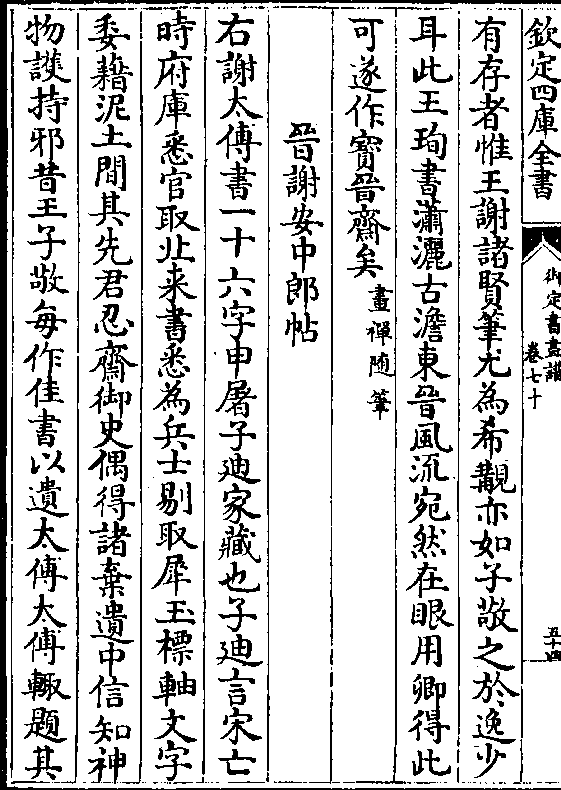 欽定四庫全書
御定書畫譜
卷七十
五十四
有存者惟王謝諸賢筆尤為希覯亦如子敬之於逸少
耳此王珣書瀟灑古澹東晉風流宛然在眼用卿得此
可遂作寶晉齋矣畫禪隨筆
晉謝安中郎帖
右謝太傅書一十六字申屠子迪家藏也子迪言宋亡
時府庫悉官取北来書悉為兵士剔取犀玉標軸文字
委藉泥土間其先君忍齋御史偶得諸棄遺中信知神
物護持邪昔王子敬每作佳書以遺太傅太傅輙題其